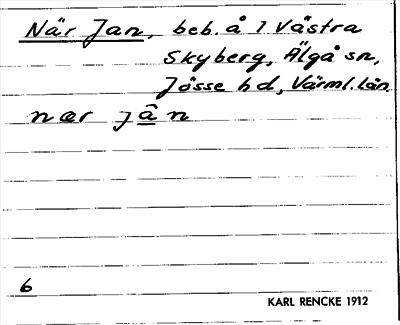 När Jan, beb. å 1 Västra
Skyberg, Älgå sn,
Jösse hd, Värml. län
nær jân
6
KARL RENCKE 1912